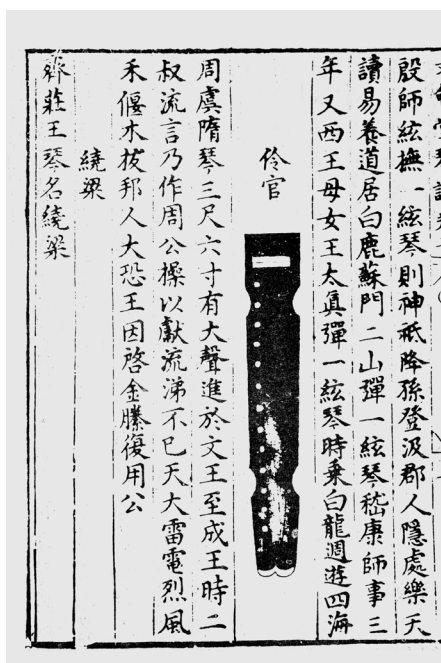 殷師絃撫一絃琴則神祗降孫登汲郡人隱處樂天
讀易養道居白鹿蘇門二山彈一絃琴嵇康師事三
年又西王母女王太真彈一絃琴時乗白龍週遊四海
伶官
周虞隋琴三尺六寸有大聲進於文王至成王時二
叔流言乃作周公操以獻流涕不已天大雷電烈風
禾偃木拔邦人大恐王因啓金縢復用公
繞梁
齊莊王琴名繞梁